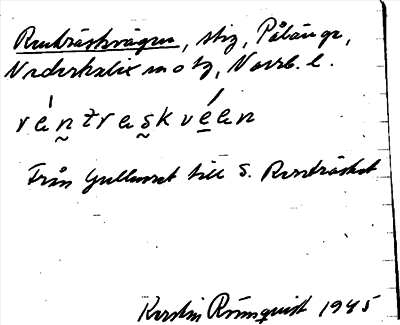 Renträskvägen, stig, Pålänge,
Nederkalix sn o tg, Norrb. l.
ré̱ntraskvéen
Från Gullunet till S. Renträsket
Kerstin Rönnquist 1945